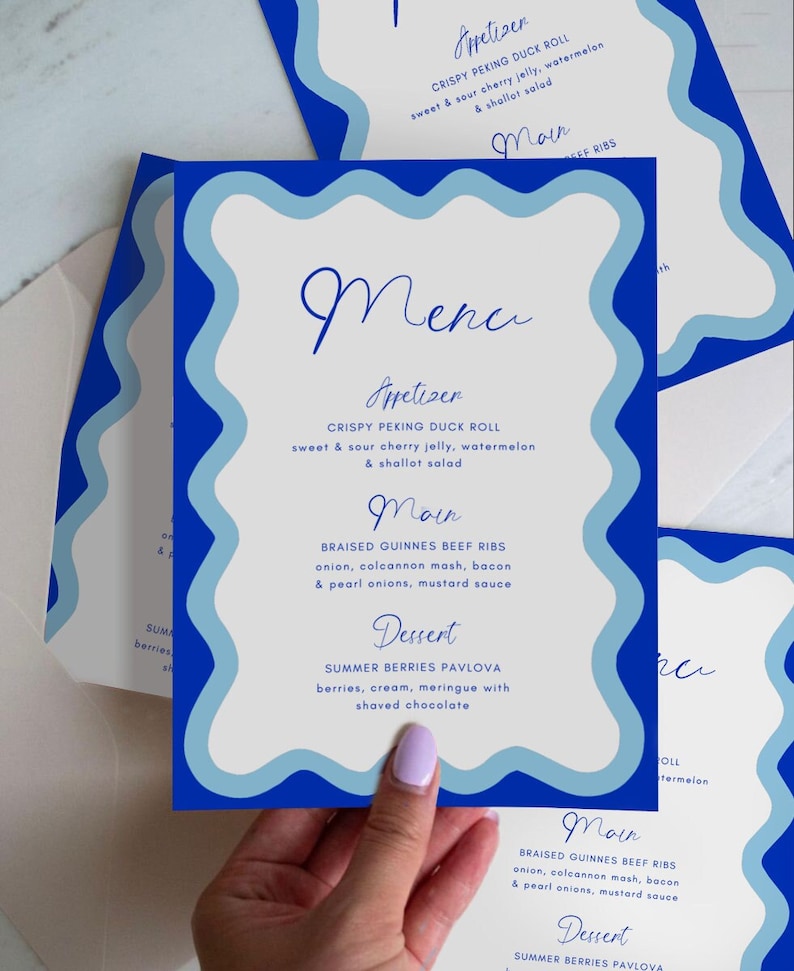 Appetizer
CRISPY PEKING DUCK ROLL
sweet & sour cherry jelly, watermelon
& shallot salad
Main
BEEF RIBS
Menu
Appetizer
CRISPY PEKING DUCK ROLL
sweet & sour cherry jelly, watermelon
& shallot salad
Main
BRAISED GUINNES BEEF RIBS
onion, colcannon mash, bacon
& pearl onions, mustard sauce
Dessert
SUMMER BERRIES PAVLOVA
berries, cream, meringue with
shaved chocolate
berries,
Main
BRAISED GUINNES BEEF RIBS
onion, colcannon mash, bacon
& pearl onions, mustard sauce
Dessert
SUMMER BERRIES PAVLOVA